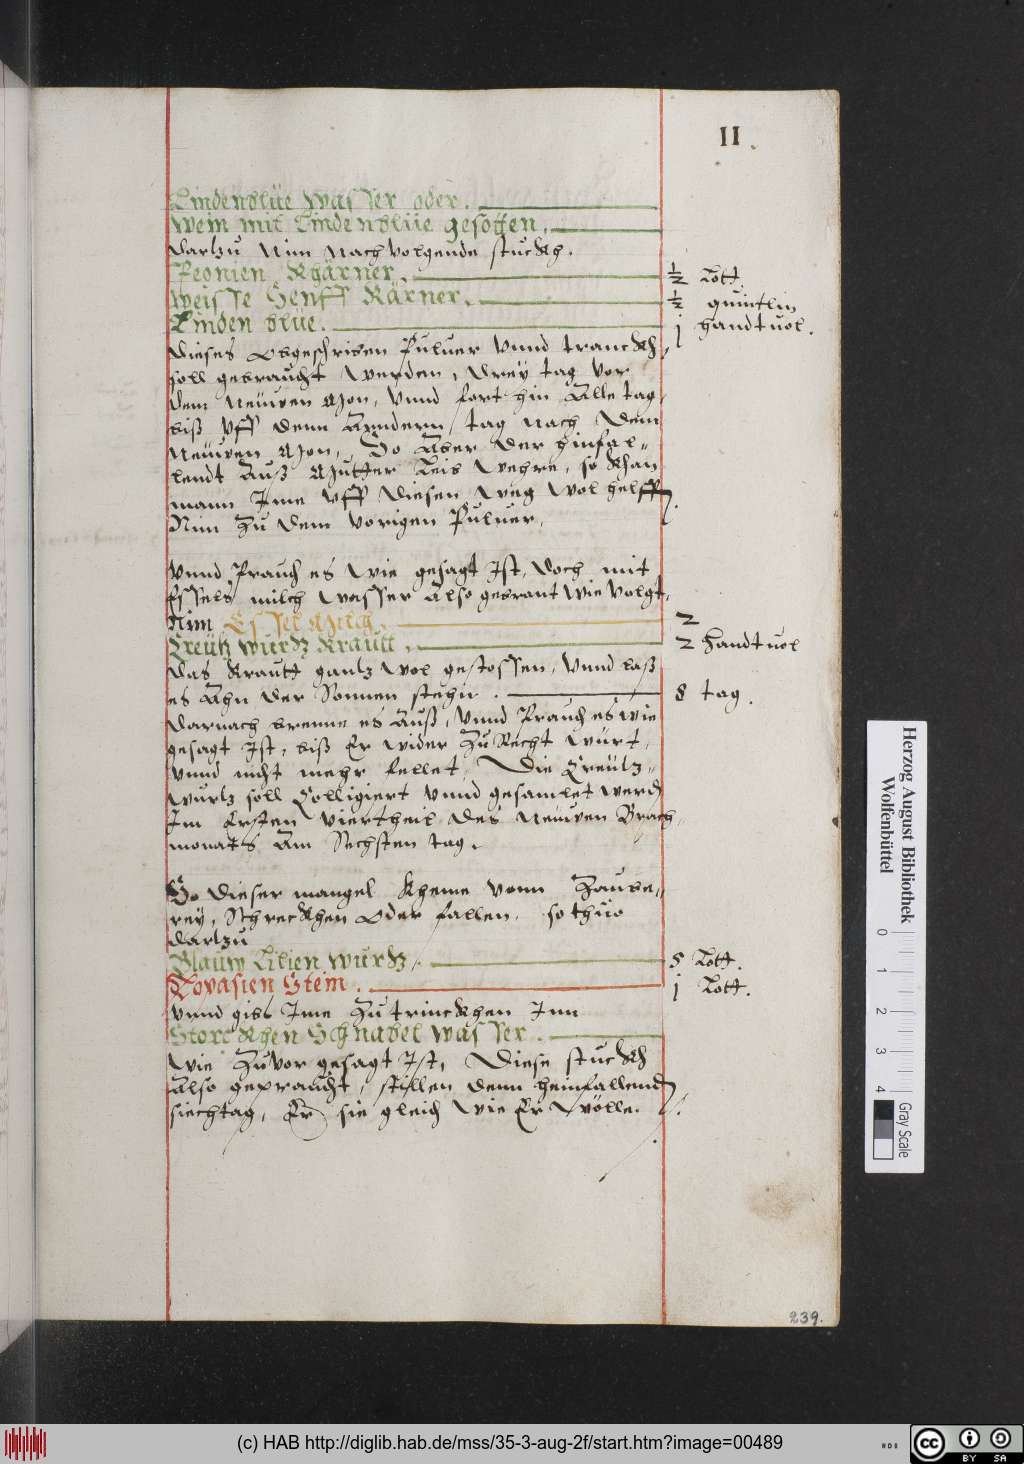 II.
Lindenblüe wasser oder.
Wein mit Lindenblüe gesotten.
dartzu Nim Nachvolgende stuckh.
Peonien Khärner. ½ Lott.
Weisse Senff Kärner. ½ quintlin
Linden blüe. j handtvol.
dieses obgeschriben Puluer vnnd tranckh,
soll gebraucht werden, drey tag vor
dem Neüwen Mon, vnnd fort hin Alle tag,
biß vff denn Anndern tag nach dem
Neüwen Mon, So Aber der hinfal-
lendt Auß Mutter Leib Wehre, so khan
mann Ime vff diesen Weg wol helffen.
Nim Zu dem vorigen Puluer,
vnnd Prauch es Wie gesagt Ist, doch mit
Essels milch Wasser Also gebrant Wie volgt,
Nim Essel Milch. 2
Creütz wurtz Krautt. 2 handtvol
das Krautt gantz Wol gestossen, vnnd laß
es Ahn der Sonnen stehn. 8 tag.
darnach brenne es Auß, vnnd Prauch es Wie
gesagt Ist, biß Er wider Zu Recht Würt,
vnnd nicht mehr fellet, Die Creütz-
wurtz soll Colligiert vnnd gesamlet werd
Im Ersten Viertheil des Neüwen Brach-
monats Am Sechsten tag.
So dieser mangel Kheme vonn Zaube-
rey, Schreckhen Oder fallen, so thuo
dartzu
Blauw Lilien wurtz. 8 Lott.
Topasien Stein. j Lott.
vnnd gibs Ime Zu trinckhen Inn
Storckhen Schnabel wasser.
Wie Zuvor gesagt Ist, Diese stuckh
Also gepraucht, stillen denn heinfallend
siechtag, Er sie gleich Wie Er Wölle.
239.
Herzog August Bibliothek
Wolfenbüttel
0 1 2 3 4
Gray Scale
(c) HAB http://diglib.hab.de/mss/35-3-aug-2f/start.htm?image=00489
cc BY SA